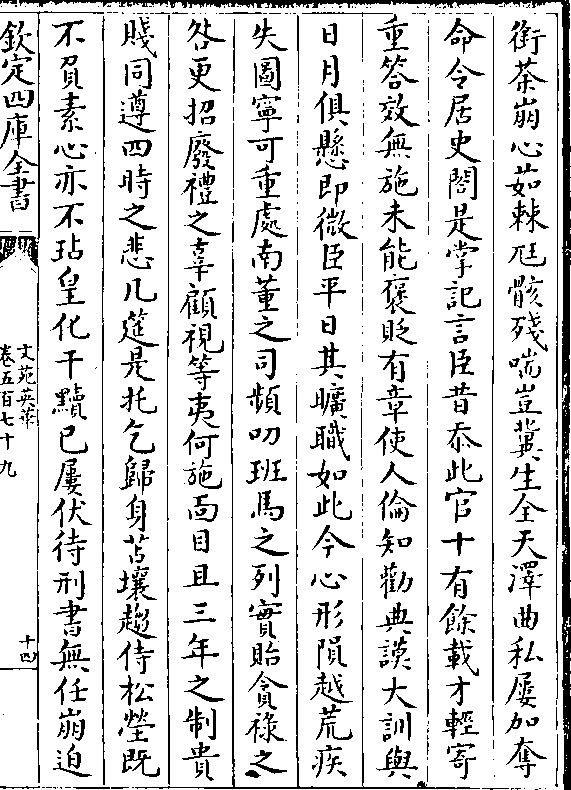 銜荼崩心茹棘尫骸殘喘豈冀生全天澤曲私屢加奪
命令居史閣是掌記言臣昔忝此官十有餘載才輕寄
重答效無施未能褒貶有章使人倫知勸典謨大訓與
日月俱懸即微臣平日其曠職如此今心形隕越荒疾
失圖寧可重處南董之司頻叨班馬之列實貽貪祿之
咎更招廢禮之辜顧視等夷何施面目且三年之制貴
賤同遵四時之悲几筵是托乞歸身苫壤趨侍松塋既
不負素心亦不玷皇化干黷已屢伏待刑書無任崩迫
欽定四庫全書
文苑英華
卷五百七十九
十四